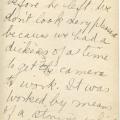 before he left. We
don't look very pleased
because we had a
dickens of a time
to get the camera
to work. It was
worked by means
of a string